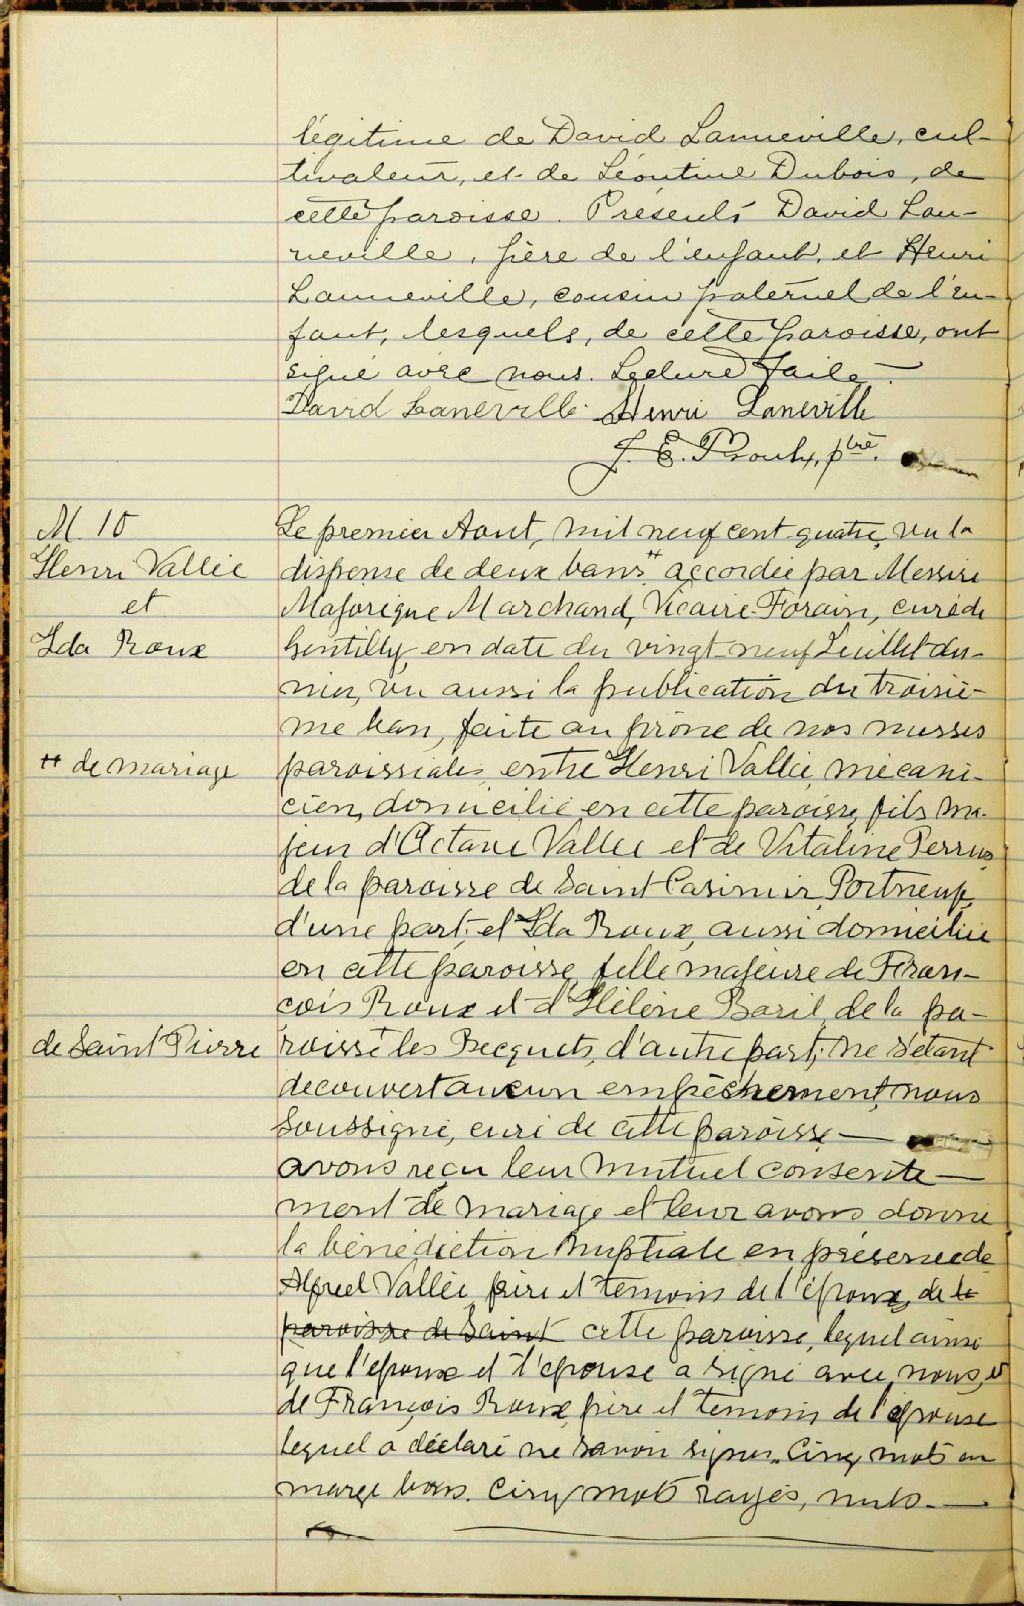 légitime de David Lanneville, cul-
tivateur, et de Léontine Dubois, de
cette paroisse. Présents David Lan-
neville, père de l'enfant, et Henri
Lanneville, cousin paternel de l'en-
fant, lesquels, de cette paroisse, ont
signé avec nous. Lecture faite.
David Laneville Henri Laneville
J. E. Proulx, ptre.
M. 10
Henri Vallée
et
Ida Roux
Le premier Aout, mil neuf cent quatre, vu la
dispense de deux bans ++ accordée par Messire
Majorique Marchand, Vicaire Forain, curé de
Gentilly, en date du vingt-neuf Juillet der-
nier, vu aussi la publication du troisiè-
me ban, faite au prône de nos messes
++ de mariage
paroissiales, entre Henri Vallée, mécani-
cien, domicilié en cette paroisse, fils ma-
jeur d'Octave Vallée et de Vitaline Perron
de la paroisse de Saint Casimir, Portneuf,
d'une part, et Ida Roux, aussi domiciliée
en cette paroisse, fille majeure de Fran-
çois Roux et d'Hélène Baril de la pa-
de Saint Pierre
roisse les Becquets, d'autre part; ne s'étant
découvert aucun empêchement, nous
soussigné, curé de cette paroisse —
avons reçu leur mutuel consente-
ment de mariage et leur avons donné
la bénédiction nuptiale en présence de
Alfred Vallée, frère et témoins de l'époux, de la
paroisse de Saint cette paroisse, lequel ainsi
que l'époux et l'épouse a signé avec nous, et
de François Roux, père et témoin de l'épouse
lequel a déclaré ne savoir signer. Cinq mots en
marge bons. Cinq mots rayés, nuls. —